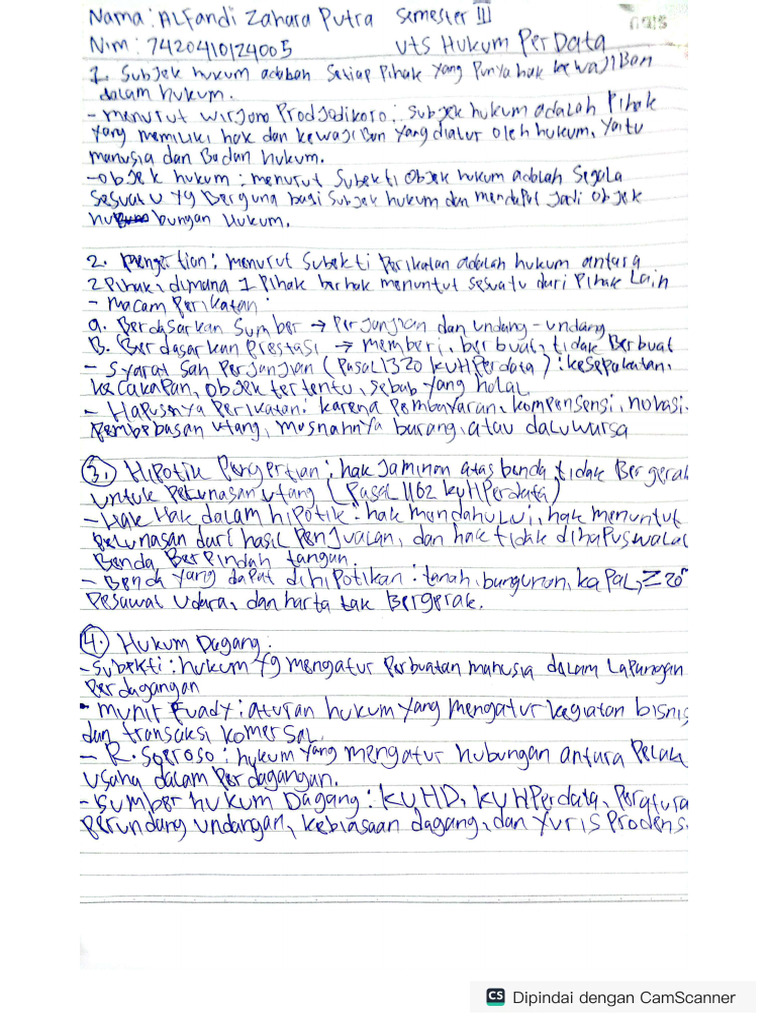 Nama : ALFandi Zahara Putra Semester III
Nim : 7420410124005 UTS Hukum PerData
1. Subjek hukum adalah Setiap Pihak Yang Punya hak kewajiban
dalam hukum.
- menurut wirjono Prodjodikoro : subjek hukum adalah Pihak
Yang memiliki hak dan kewajiban Yang diatur oleh hukum, Yaitu
manusia dan Badan hukum.
- objek hukum : menurut Subekti Objek hukum adalah Segala
Sesuatu Yg Berguna bagi Subjek hukum dan mendapat Jadi objek
hubungan Hukum.
2. Pengertian : menurut Subekti Perikatan adalah hukum antara
2 Pihak, dimana 1 Pihak berhak menuntut sesuatu dari Pihak Lain
- macam Perikatan :
a. Berdasarkan Sumber → Perjanjian dan undang-undang
B. Berdasarkan Prestasi → memberi, berbuat, tidak Berbuat
- Syarat Sah Perjanjian (Pasal 1320 KUHPerdata) : kesepakatan,
kecakapan, objek tertentu, sebab yang halal
- Hapusnya Perikatan : karena Pembayaran, kompensensi, novasi.
Pembebasan utang, musnahnya barang, atau daluwarsa
3. Hipotik Pengertian : hak Jaminan atas benda tidak Bergerak
untuk Pelunasan utang (Pasal 1162 KUHPerdata)
- Hak Hak dalam hipotik : hak mendahului, hak menuntut
Pelunasan dari hasil Penjualan, dan hak tidak dihapus walau
Benda Berpindah tangan.
- Benda Yang dapat dihipotikan : tanah, bangunan, kaPaL, Z 20
Pesawat Udara, dan harta tak Bergerak.
4. Hukum Dagang :
- Subekti : hukum yg mengatur Perbuatan manusia dalam Lapangan
Perdagangan
- munir Fuady : aturan hukum yang mengatur kegiatan bisnis
dan transaksi komersal.
- R. Soeroso : hukum Yang mengatur hubungan antara Pelaku
usaha dalam Perdagangan.
- Sumber hukum Dagang : KUHD, KUHPerdata, Peratura
Perundang undangan, kebiasaan dagang, dan Yuris Prodens.
CS Dipindai dengan CamScanner